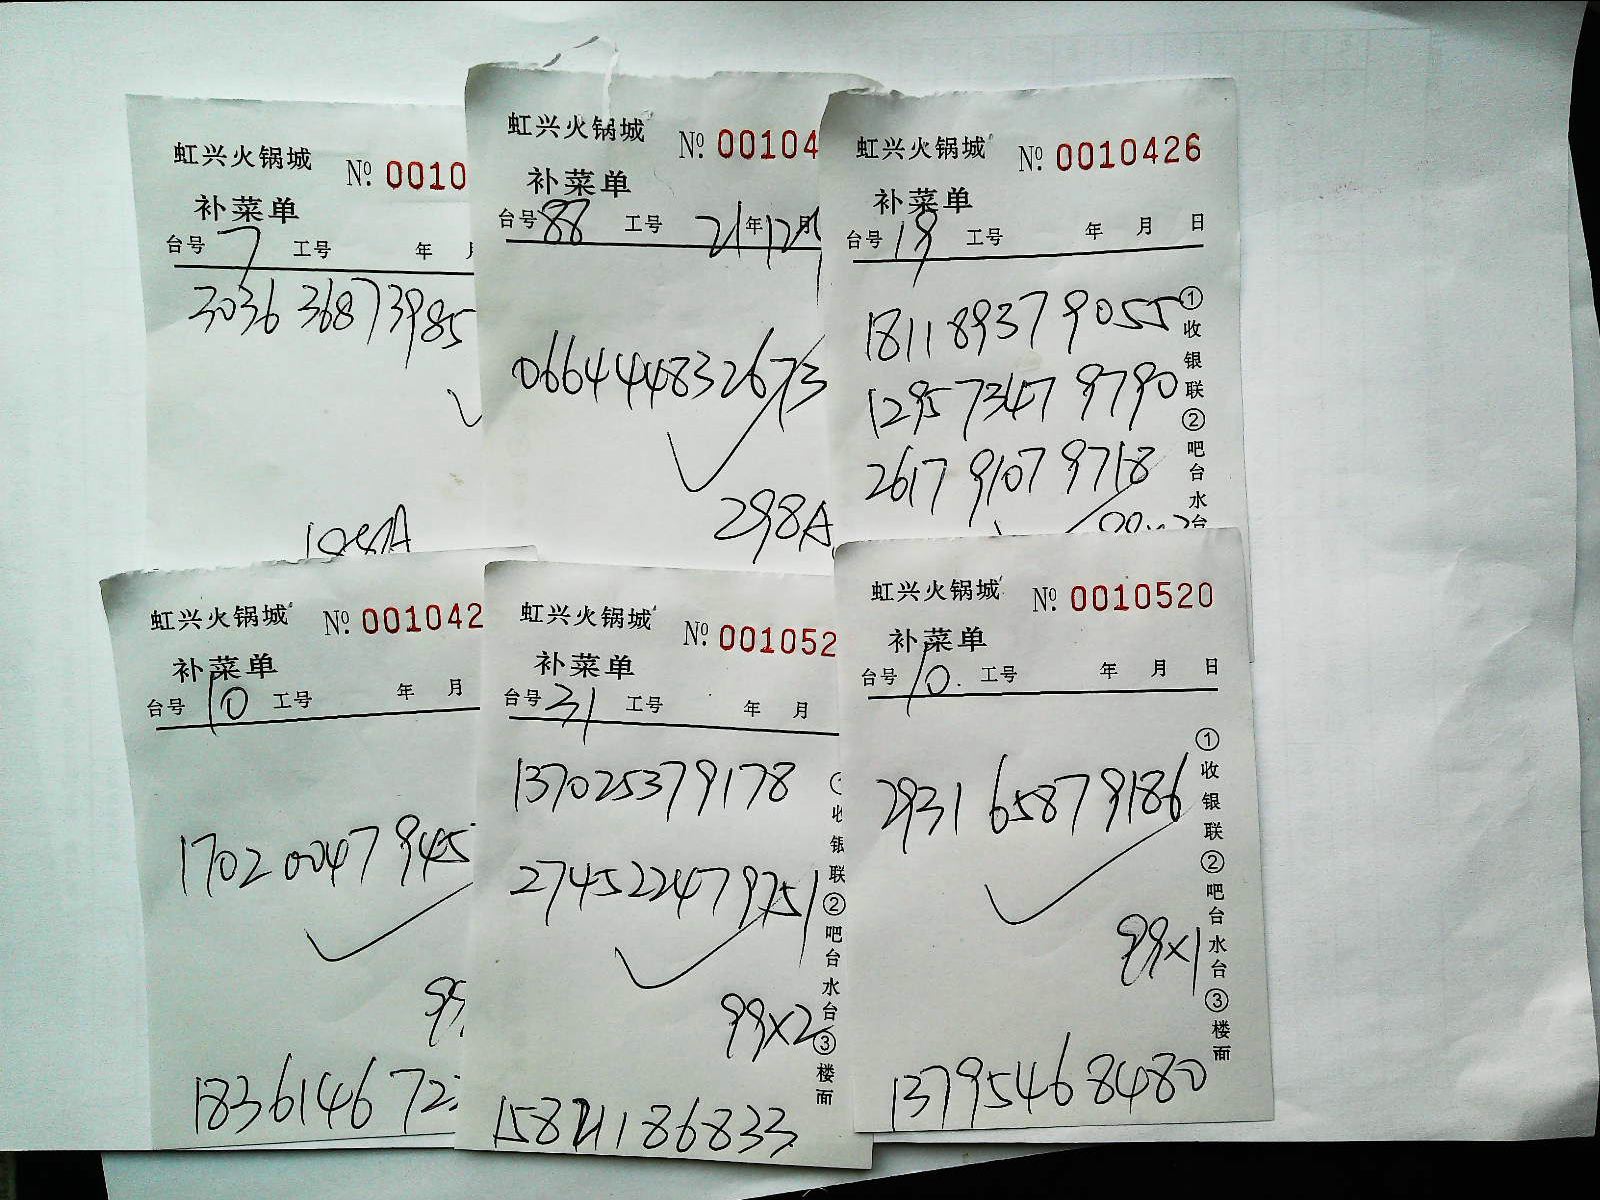 虹兴火锅城 № 0010
补菜单
台号 7 工号 年
3036 3687 3985
198A
虹兴火锅城 № 00104
补菜单
台号 88 工号 21年12月
066444832673
298A
虹兴火锅城 № 0010426
补菜单
台号 19 工号 年 月 日
181189379055
129573479790
261791079718
①收银联②吧台水台
虹兴火锅城 № 001042
补菜单
台号 10 工号 年 月
17020047945
1836146 72
虹兴火锅城 № 001052
补菜单
台号 31 工号 年 月
137025379178
274522479751
99×2
15821186833
收银联②吧台水台③楼面
虹兴火锅城 № 0010520
补菜单
台号 10. 工号 年 月 日
293165879186
99×1
13795468480
①收银联②吧台水台③楼面